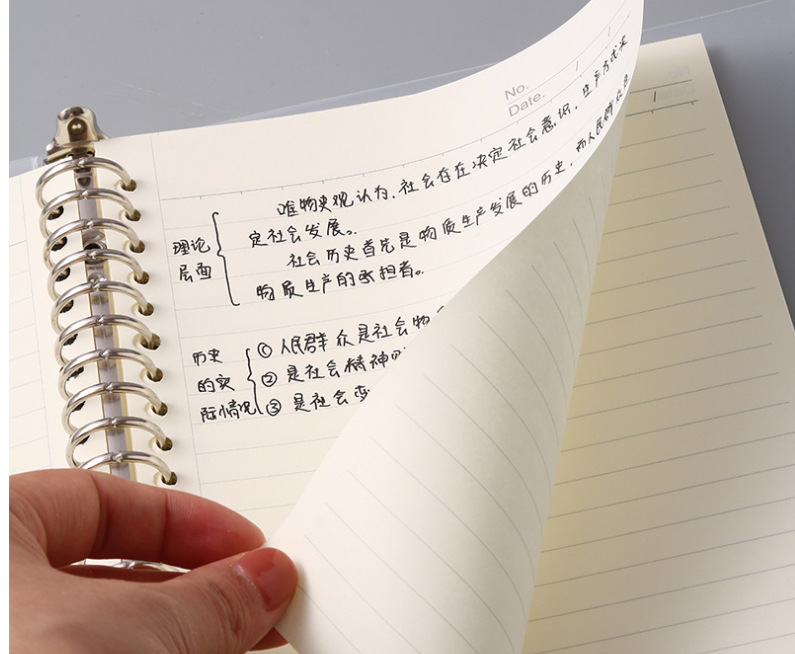 No.
Date.
唯物史观认为,社会存在决定社会意识,生产方式决
理论
定社会发展。
层面
社会历史首先是物质生产发展的历史,而人民群众是
物质生产的承担者。
历史
① 人民群众是社会物
的实
② 是社会精神
际情况
③ 是社会变